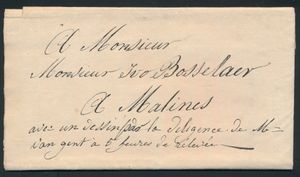 A Monsieur
Monsieur Ivo Bosselaer
A Malines
avec un dessin par la diligence de M=
gent à 5 heures de relevée